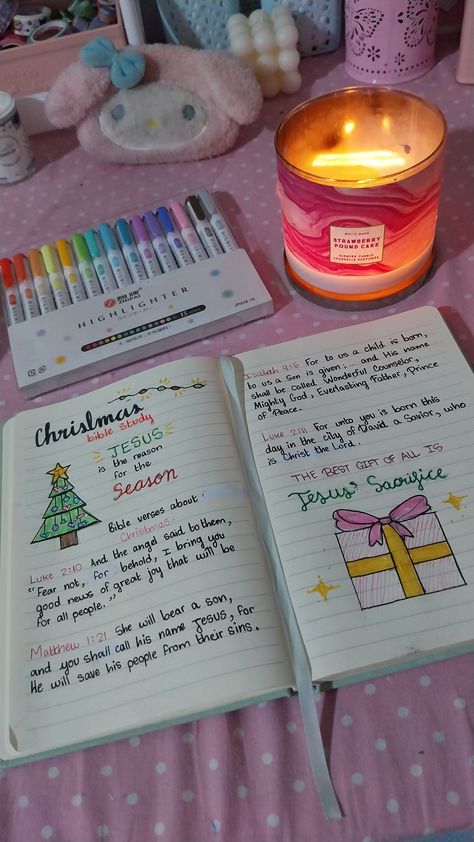 WHITE BARN
STRAWBERRY
POUND CAKE
SCENTED CANDLE
HIGHLIGHTER
ZP018-15
Christmas
bible study
JESUS
is the reason
for the
Season
Bible verses about
Christmas:
Luke 2:10 And the angel said to them,
"Fear not, for behold, I bring you
good news of great joy that will be
for all people."
Matthew 1:21 She will bear a son,
and you shall call his name Jesus, for
He will save his people from their sins.
Isaiah 9:6 For to us a child is born,
to us a Son is given; ... and His name
shall be called Wonderful Counselor,
Mighty God, Everlasting Father, Prince
of Peace.
Luke 2:11 For unto you is born this
day in the city of David a Savior, who
is Christ the Lord.
THE BEST GIFT OF ALL IS
Jesus' Sacrifice